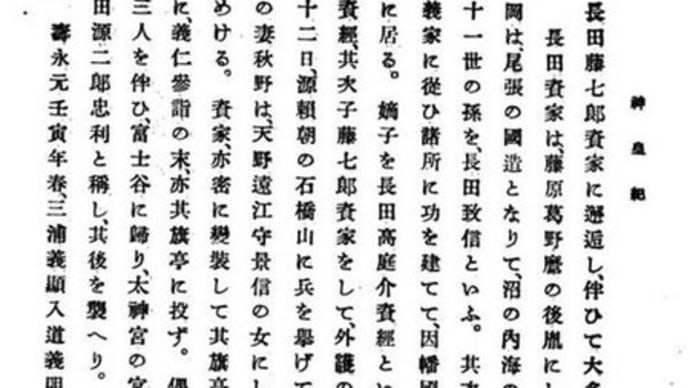 神皇紀
長田藤七郎資家に邂逅し、伴ひて大
長田資家は、藤原葛野麿の後胤にし
岡は、尾張の國造となりて、沼の内海の
十一世の孫を、長田致信といふ。其
義家に從ひ諸所に功を建てて、因幡國
に居る。嫡子を長田高庭介資經とい
資經、其次子藤七郎資家をして、外護の
十二日、源賴朝の石橋山に兵を擧げて
の妻秋野は、天野遠江守景信の女にし
めける。資家、亦密に變裝して其旗亭
に、義仁參詣の末、亦其旗亭に投ず。偶
三人を伴ひ、富士谷に歸り、太神宮の宮
田源二郎忠利と稱し、其後を襲へり。
壽永元壬寅年春、三浦義顯入道義